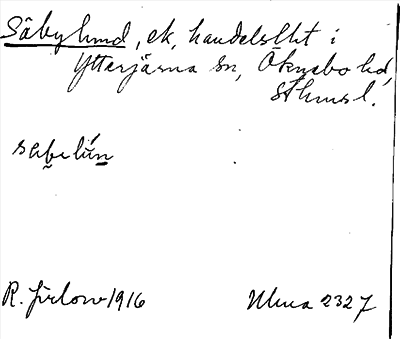 Säbylund, ek, handelslht i
Ytterjärna sn, Öknebo hd,
Sthmsl.
sabelún
R. Jirlow 1916
Ulma 2327